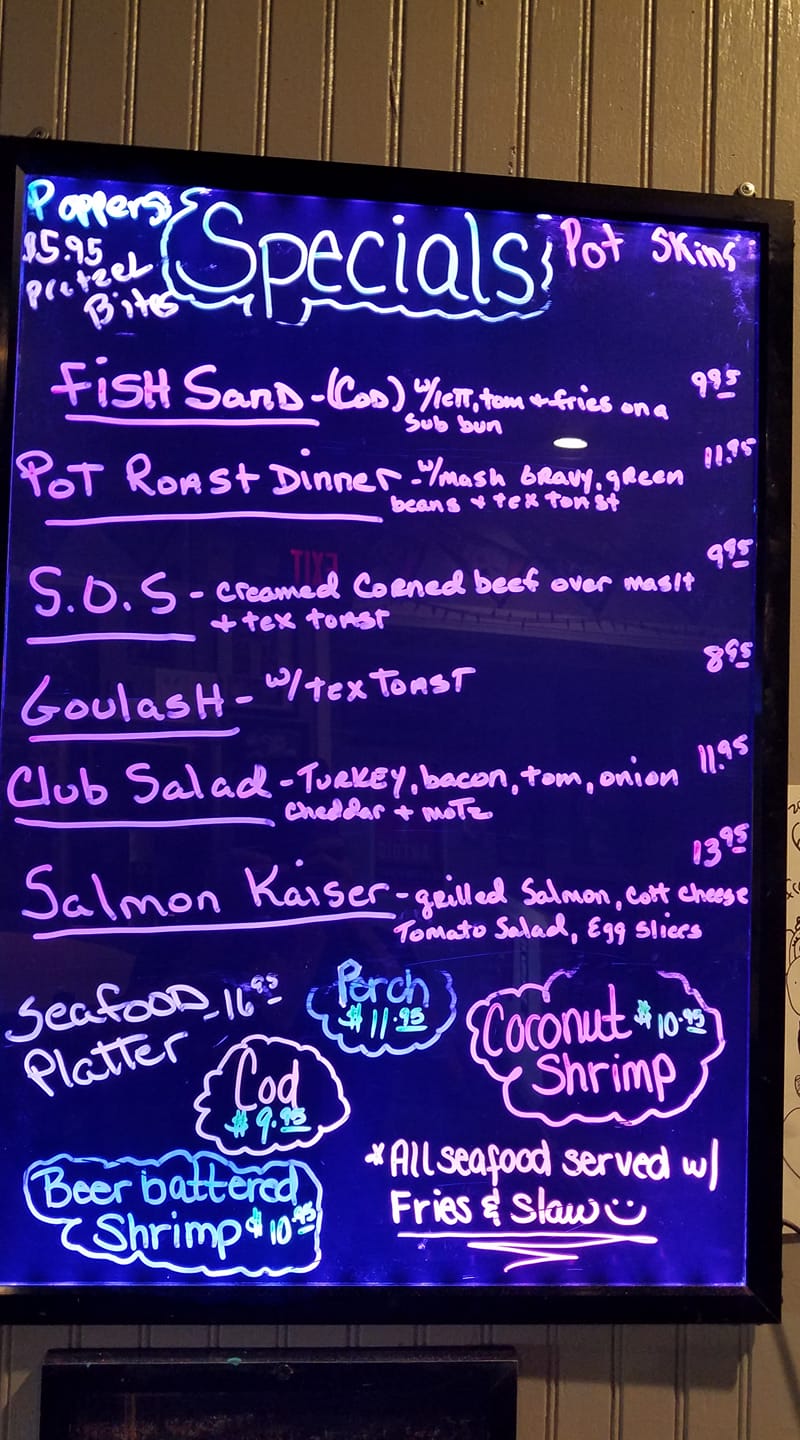 Poppers
$5.95
Pretzel
Bites
Specials
Pot Skins
Fish Sand - (Cod) w/lett, tom + fries on a
sub bun
9.95
Pot Roast Dinner - w/mash Gravy, green
beans + tex toast
11.95
S.O.S - creamed corned beef over mash
+ tex toast
9.95
Goulash - w/ tex Toast
8.95
Club Salad - Turkey, bacon, tom, onion
cheddar + motz
11.95
Salmon Kaiser - grilled Salmon, cott cheese
Tomato Salad, Egg slices
13.95
Seafood - 16.95
Platter
Perch
$11.95
Cod
$9.95
Coconut $10.95
Shrimp
Beer battered
Shrimp $10.95
*All seafood served w/
Fries & Slaw
EXIT